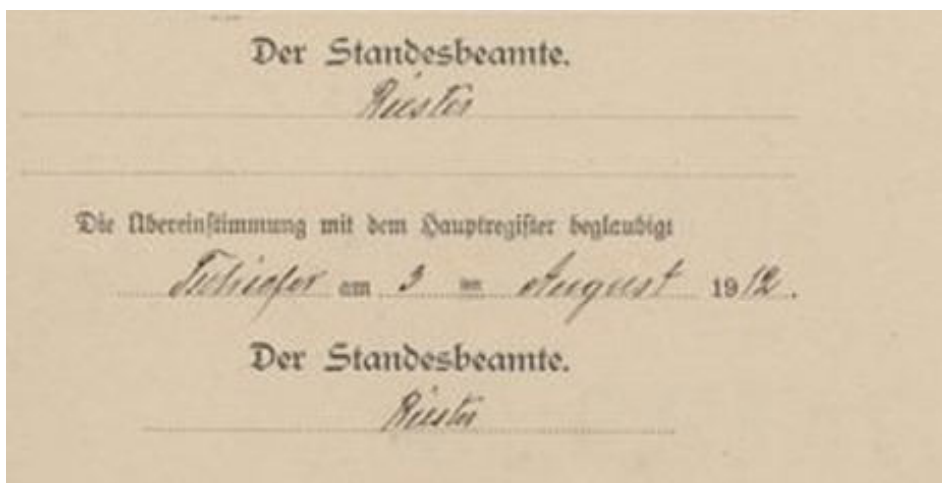 Der Standesbeamte.
Riester
Die Übereinstimmung mit dem Hauptregister beglaubigt
am 3 ten August 1912.
Der Standesbeamte.
Riester